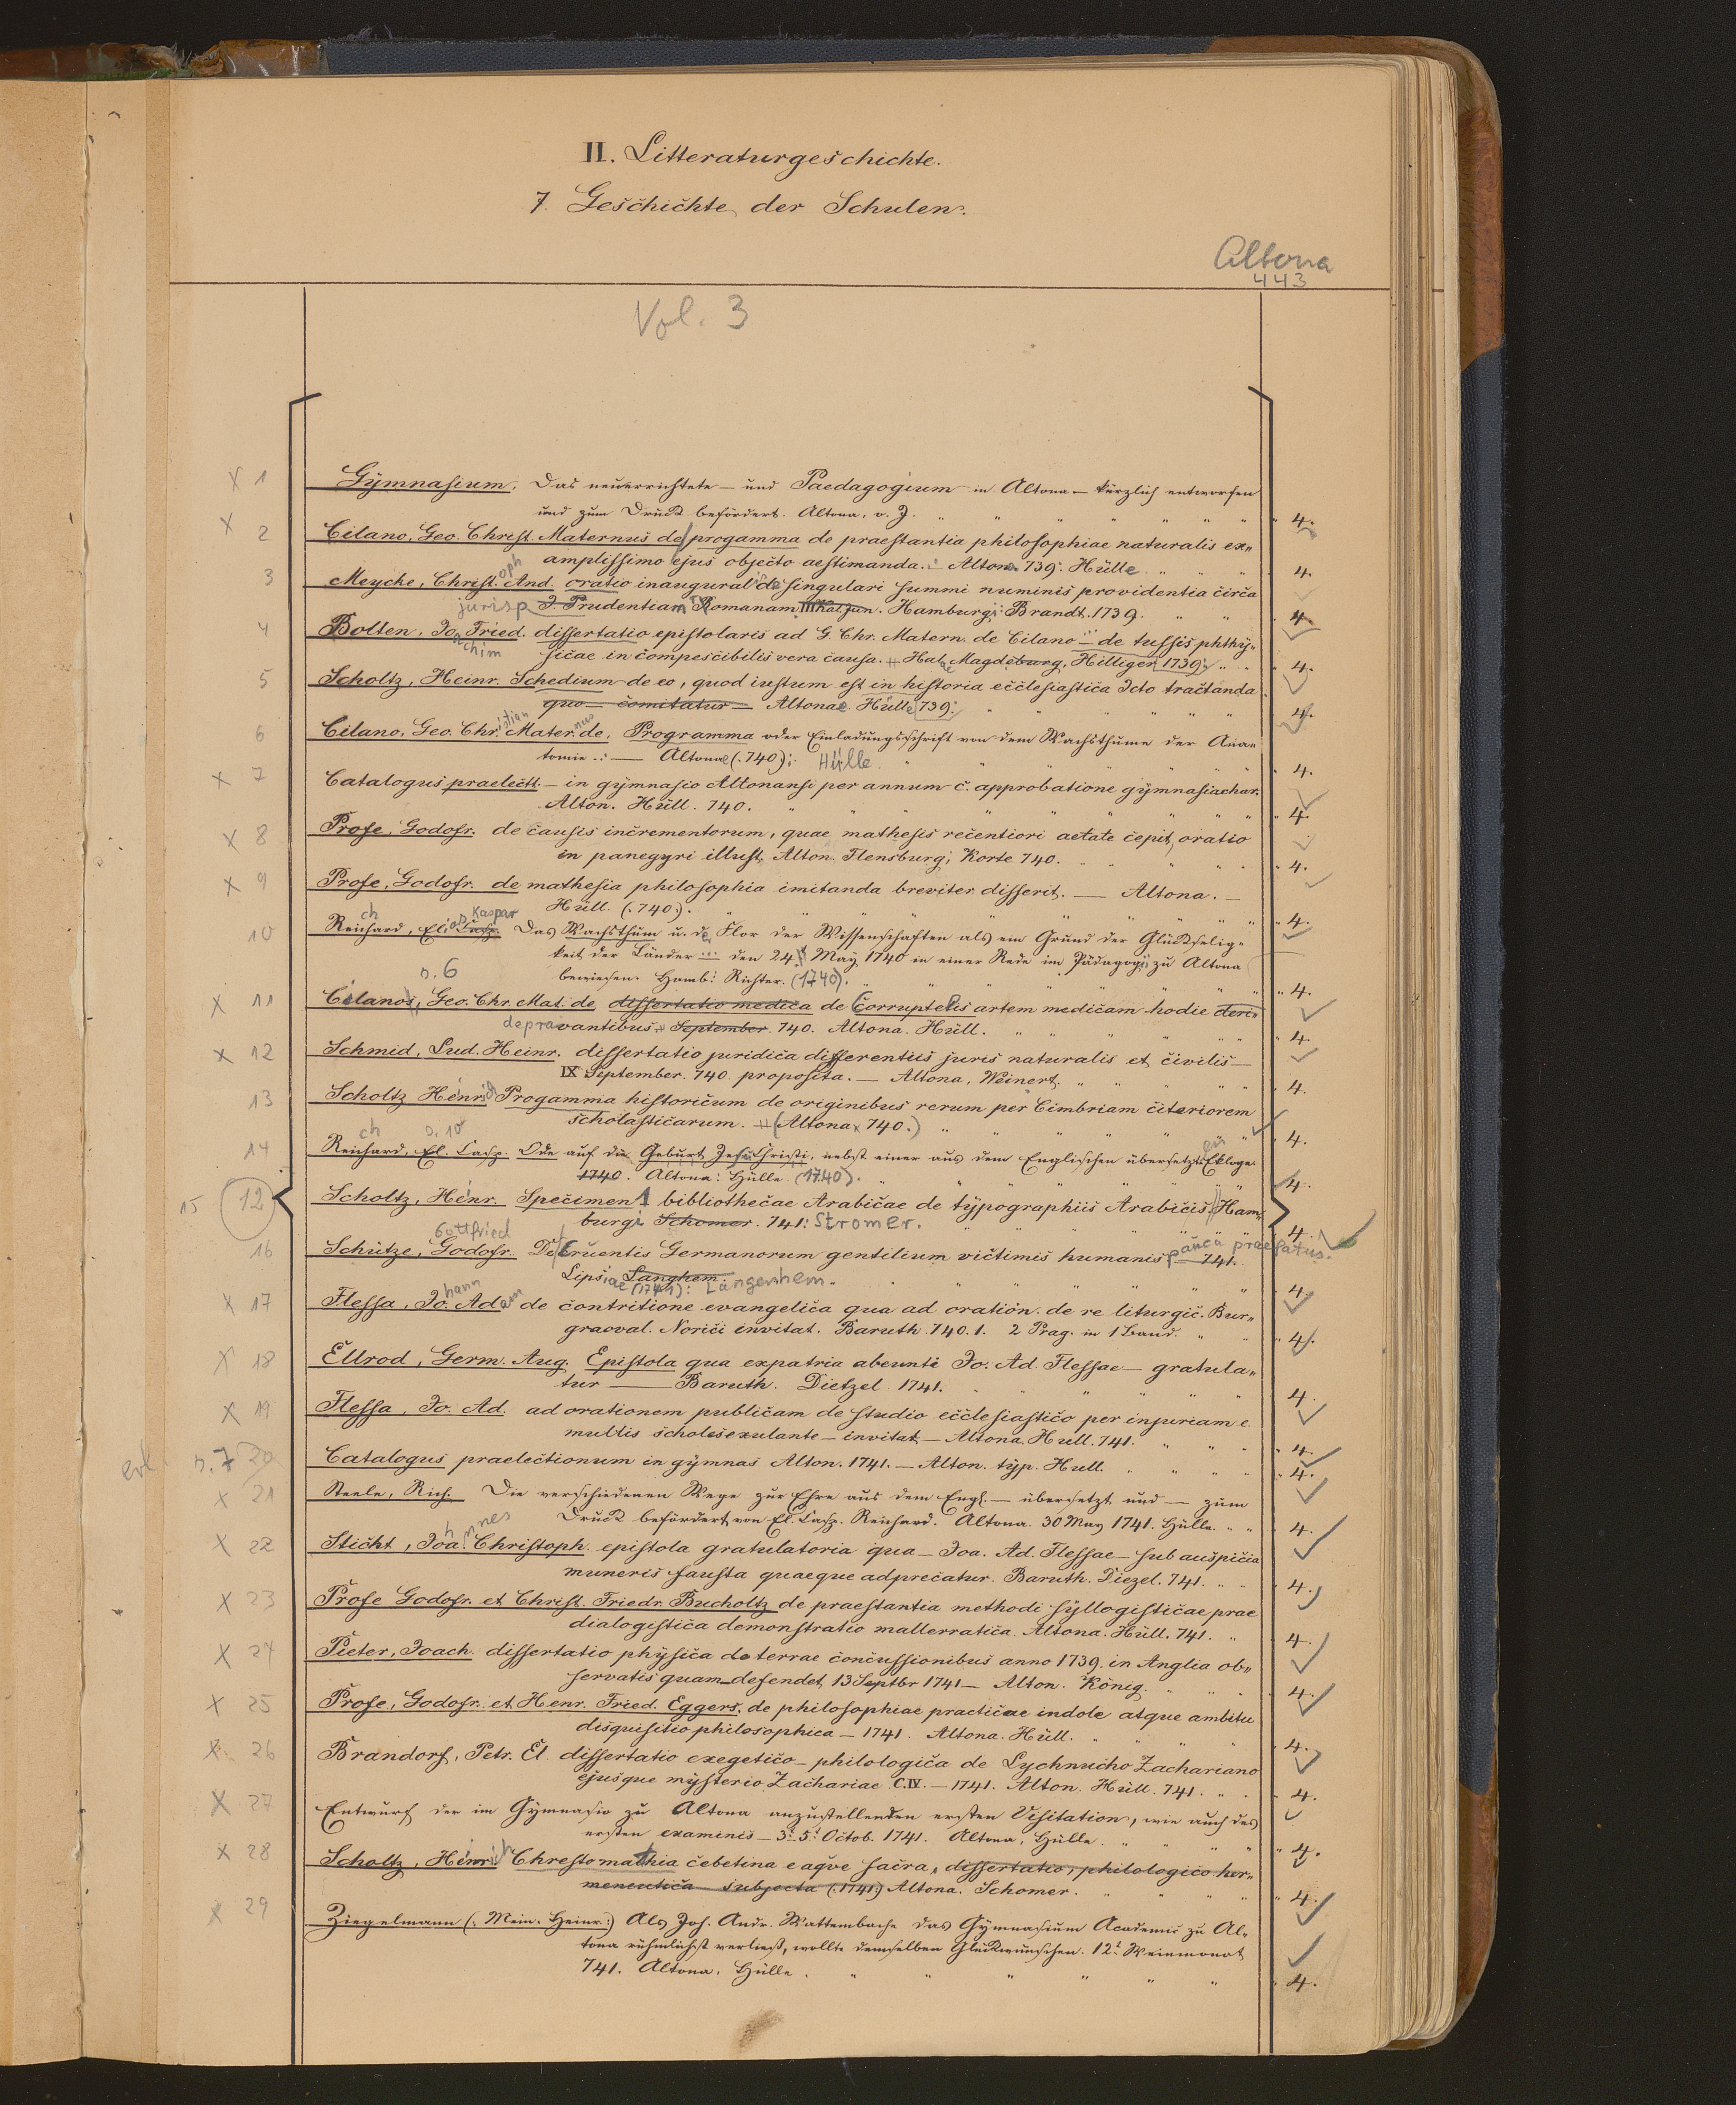 II. Litteraturgeschichte.
7. Geschichte der Schulen.
Altona
443
Vol. 3
X 1 Gymnasium. Das neuerrichtete – und Paedagogium in Altona – kürzlich entworfen
und zum Druck befördert. Altona, o. J. " 4.
X 2 Cilano, Geo. Christ. Maternus de progamma de praestantia philosophiae naturalis ex„
amplissimo ejus objecto aestimanda. Altona 739. Hülle 4.
3 Meycke, Christoph And. oratio inauguralis de singulari summi numinis providentia circa
jurisprudentiam Romanam III Kal Jun. Hamburgi: Brandt. 1739. 4.
4 Bolten, Joachim Fried. dissertatio epistolaris ad G. Chr. Matern. de Cilano – de tussis phthy„
sicae incompescibilis vera causa. Halae Magdeburg, Hilliger 1739. 4.
5 Scholtz, Heinr. Schedium de eo, quod iustum est in historia ecclesiastica Icto tractanda
quo – comitatur – Altonae Hülle 739. 4.
6 Cilano, Geo. Christian Maternus de, Programma oder Einladungsschrift von dem Wachsthume der Ana„
tomie. — Altonae (740): Hülle 4.
X 7 Catalogus praelectt. – in gymnasio Altonansi per annum c. approbatione gymnasiachar.
Alton. Hüll. 740. 4.
X 8 Profe, Godofr. de causis incrementorum, quae mathesis recentiori aetate cepit, oratio
in panegyri illust. Alton. Flensburgi Korte 740. 4.
X 9 Profe, Godofr. de mathesia philosophia imitanda breviter disserit. — Altona. –
Hüll. (740). 4.
10 Reichard, Elias Kaspar Das Wachsthum u. der Flor der Wissenschaften als ein Grund der Glückselig„
keit der Länder den 24 May 1740 in einer Rede im Pädagogii zu Altona
bewiesen. Hamb: Richter. (1740). 4.
n. 6
X 11 Cilano, Geo. Chr. Mat. de dissertatio medica de Corruptelis artem medicam hodie deri„
depravantibus September 740. Altona. Hüll. 4.
X 12 Schmid, Lud. Heinr. dissertatio juridica differentiis juris naturalis et civilis –
IX September. 740 proposita. – Altona, Weinert. 4.
13 Scholtz Henrich Progamma historicum de originibus rerum per Cimbriam citeriorem
scholasticarum. (Altona 740.) 4.
14 Reichard, El. Casp. Ode auf die Geburt Jesu Christi, nebst einer aus dem Englischen übersetzten Ekloge
1740. Altona: Hülle (1740). 4.
15 12 Scholtz, Henr. Specimen bibliothecae Arabicae de typographiis Arabicis. Ham„
burgi Schomer. 741: Stromer. 4.
16 Schütze, Gottfried Godofr. De Cruentis Germanorum gentilium victimis humanis pauca praefatus. 741.
Lipsiae Langhem. (1741): Langenhem. 4.
X 17 Flessa, Johann Adam de contritione evangelica qua ad oration. de re liturgic. Bur„
graoval. Norici invitat. Baruth. 740. 1. 2 Prag. in 1 Band. 4.
X 18 Ellrod, Germ. Aug. Epistola qua expatria abeunti Jo. Ad. Flessae – gratula„
tur — Baruth. Dietzel 1741. 4.
X 19 Flessa, Jo. Ad. ad orationem publicam de studio ecclesiastico per injuriam e
multis scholis exulante – invitat – Altona. Hull. 741. 4.
n. 7 20 Catalogus praelectionum in gymnas Alton. 1741. – Alton. typ. Hull. 4.
X 21 Steele, Rich. Die verschiedenen Wege zur Ehre aus dem Engl. – übersetzt und – zum
Druck befördert von El. Casp. Reichard. Altona. 30 May 1741. Hülle. 4.
X 22 Sticht, Johannes Christoph. epistola gratulatoria qua – Joa. Ad. Flessae – sub auspicia
muneris fausta quaeque adprecatur. Baruth. Diezel. 741. 4.
X 23 Profe Godofr. et Christ. Friedr. Bucholtz de praestantia methodi syllogisticae prae
dialogistica demonstratio mallerratica. Altona. Hüll. 741. 4.
X 24 Pieter, Joach. dissertatio physica de terrae concussionibus anno 1739. in Anglia ob„
servatis quam defendet 13 Septbr 1741 – Alton. König. 4.
X 25 Profe, Godofr. et Henr. Fried. Eggers, de philosophiae practicae indole atque ambitu
disquisitio philosophica – 1741. Altona. Hüll. 4.
X 26 Brandorf, Petr. El. dissertatio exegetico – philologica de Lychnucho Zachariano
ejusque mysterio Zachariae C. IV. – 1741. Alton. Hüll. 741. 4.
X 27 Entwurf der im Gymnasio zu Altona anzustellenden ersten Visitation, wie auch des
ersten examinis – 3t. 5t. Octob. 1741. Altona, Hülle. 4.
X 28 Scholtz, Henrich Chrestomathia cebetina eaqve sacra, dissertatio, philologico her„
meneutica subjecta (1741.) Altona. Schomer. 4.
X 29 Ziegelmann (: Mein. Heinr:) Als Joh. Andr. Mattembache das Gymnasium Academic zu Al„
tona rühmlichst verließ, wollte demselben Glückwünschen. 12t. Weinmonat
741. Altona. Hülle. 4.